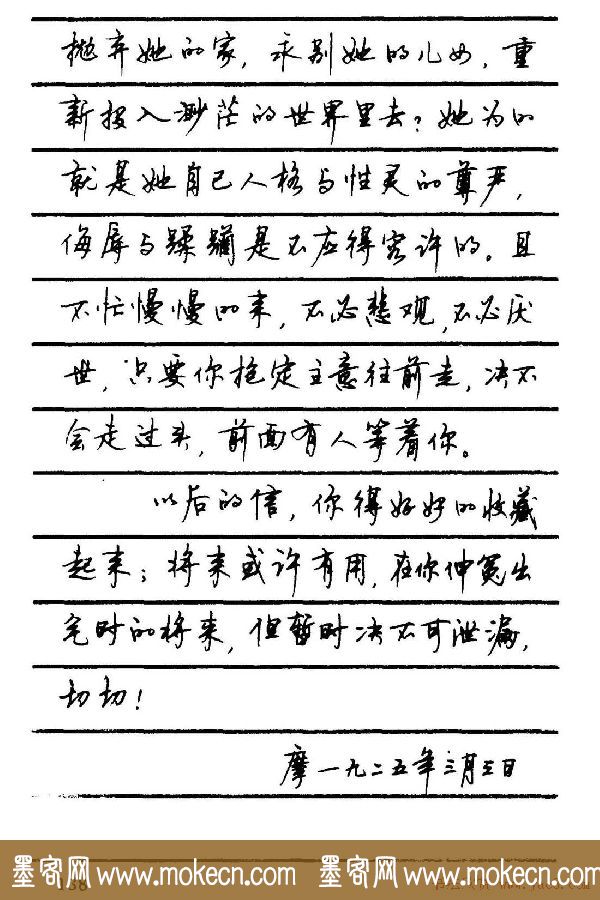 抛弃她的家，永别她的儿女，重
新投入渺茫的世界里去？她为的
就是她自己人格与性灵的尊严，
侮辱与蹂躏是不应得容许的。且
不忙慢慢的来，不必悲观，不必厌
世，只要你抱定主意往前走，决不
会走过头，前面有人等着你。
以后的信，你得好好的收藏
起来；将来或许有用，在你伸冤出
气时的将来，但暂时决不可泄漏，
切切！
摩一九二五年三月三日
墨客网 www.mokecn.com 墨客网 www.mokecn.com
138